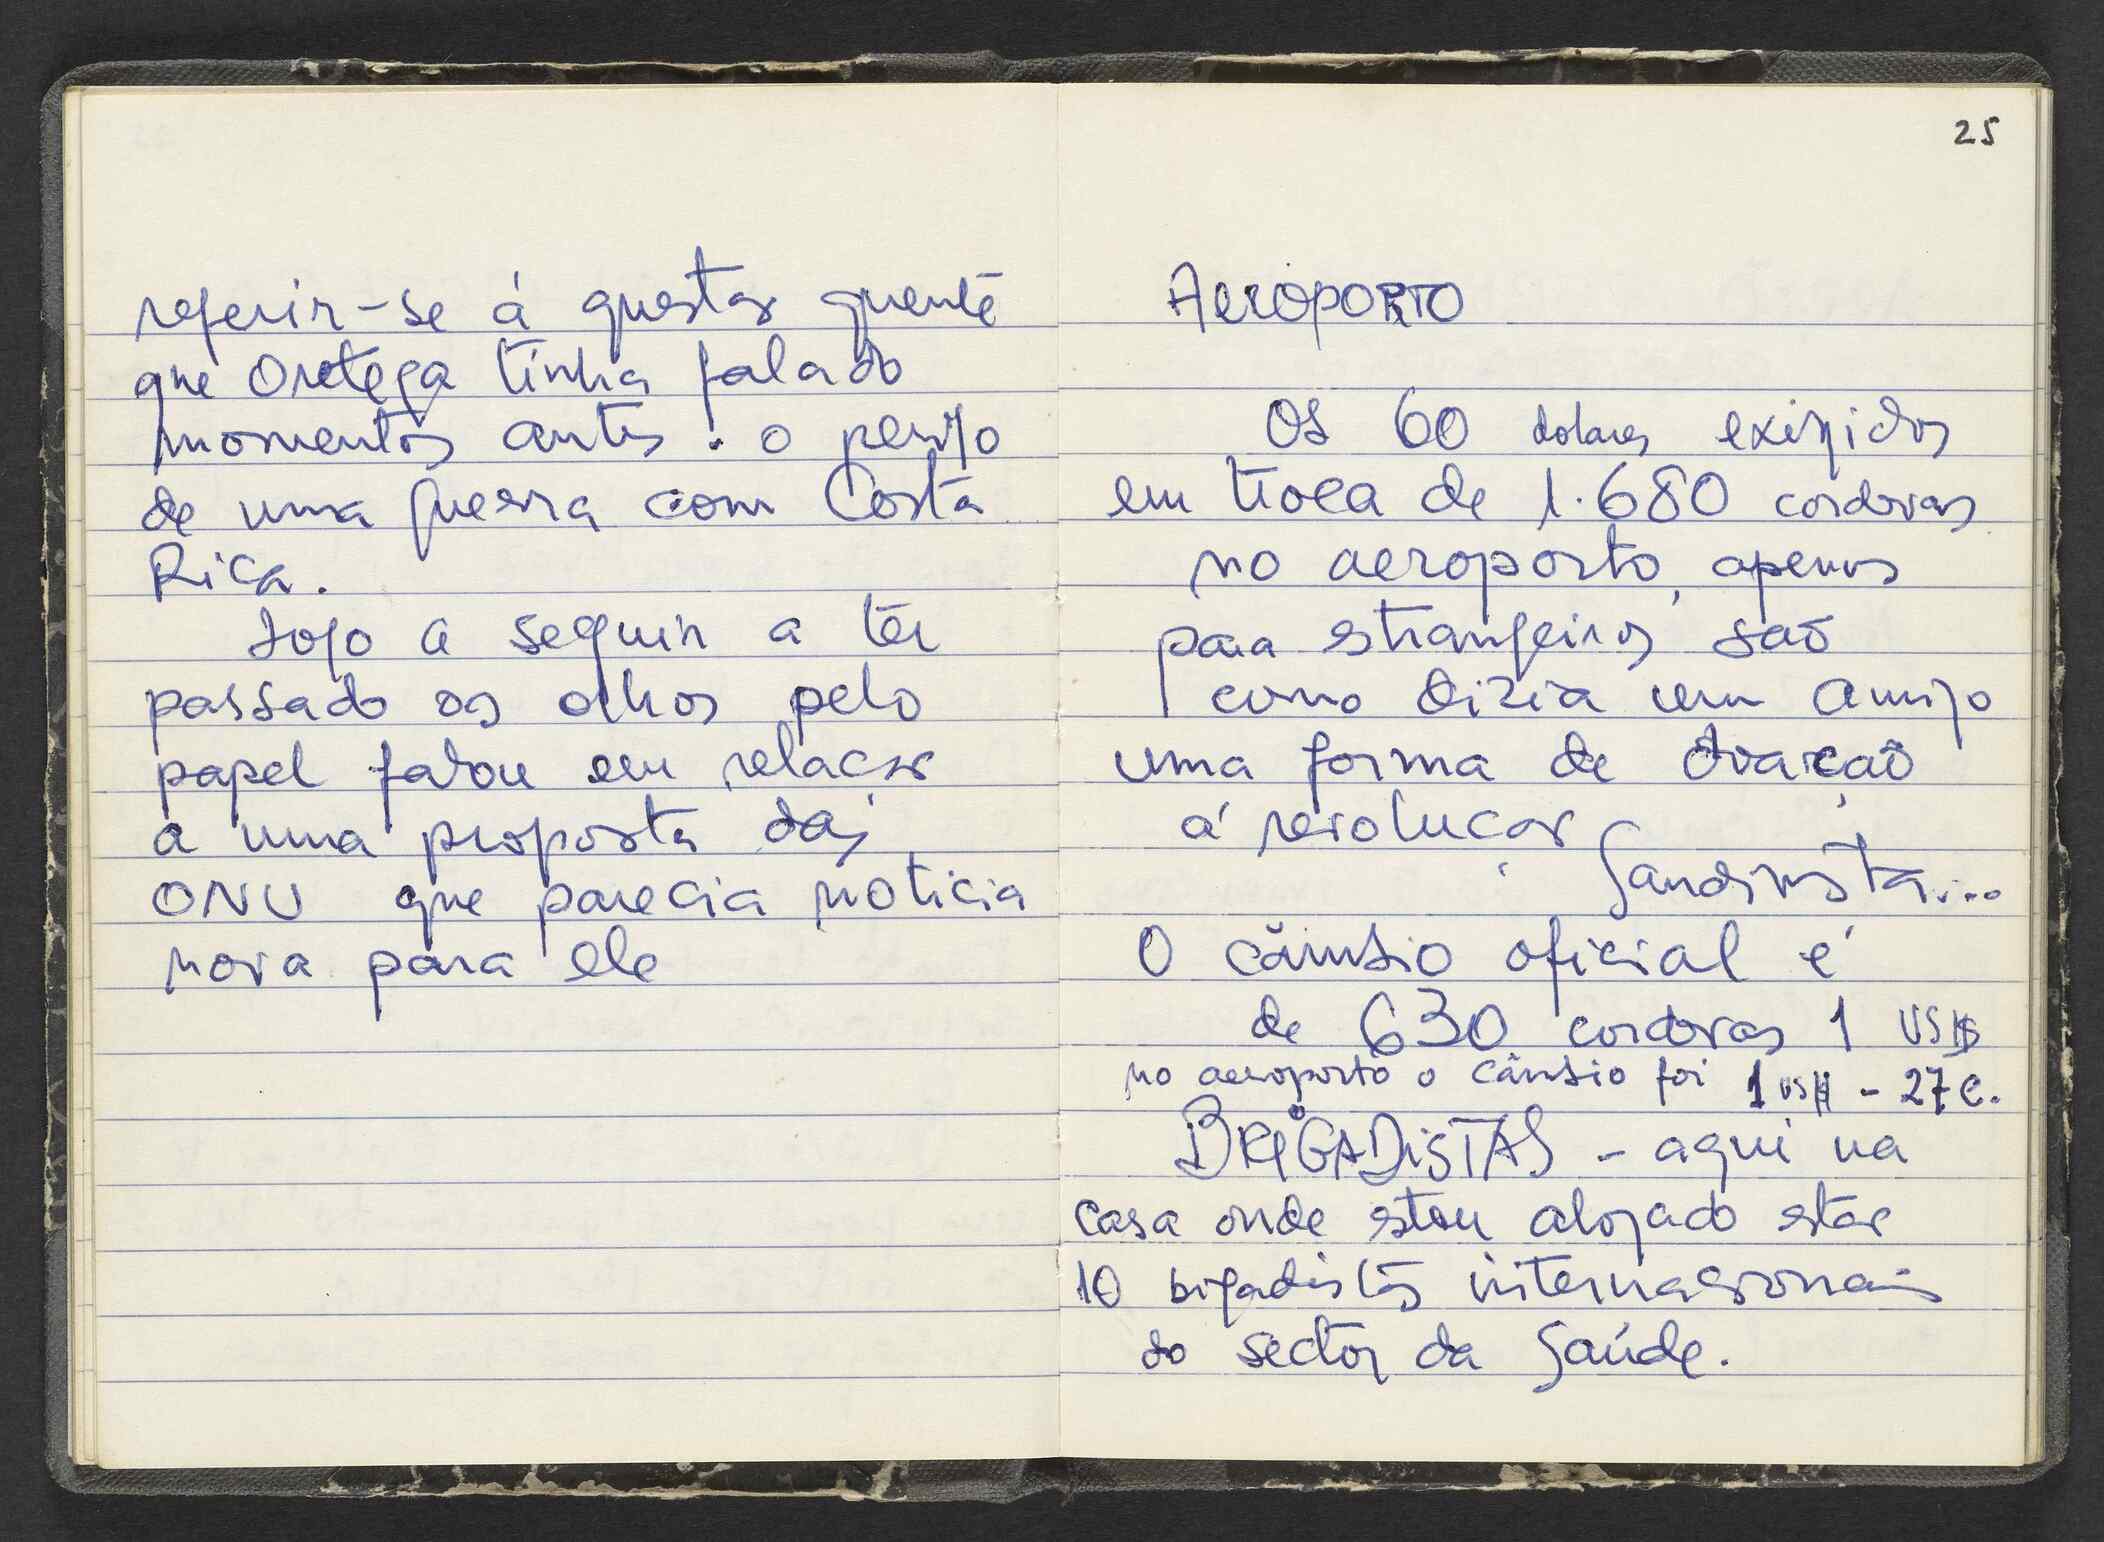 referir-se á questão quente
que Ortega tinha falado
momentos antes : o perigo
de uma guerra com Costa
Rica.
Logo a seguir a ter
passado os olhos pelo
papel falou em relação
a uma proposta da
ONU que parecia noticia
nova para ele
25
AEROPORTO
OS 60 dolares exigidos
em troca de 1.680 cordovas
no aeroporto, apenas
para estrangeiros saõ
como dizia um amigo
uma forma de doaçaõ
á revolução
Sandinista...
O câmbio oficial é
de 630 cordovas 1 US$
no aeroporto o câmbio foi 1 US$ - 27 C.
BRIGADISTAS - aqui na
casa onde estou alojado estão
10 brigadistas internacionais
do sector da Saúde.